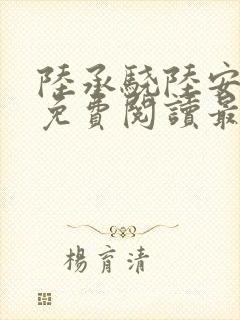 陸承驍陸安
免費閱讀最
楊育清